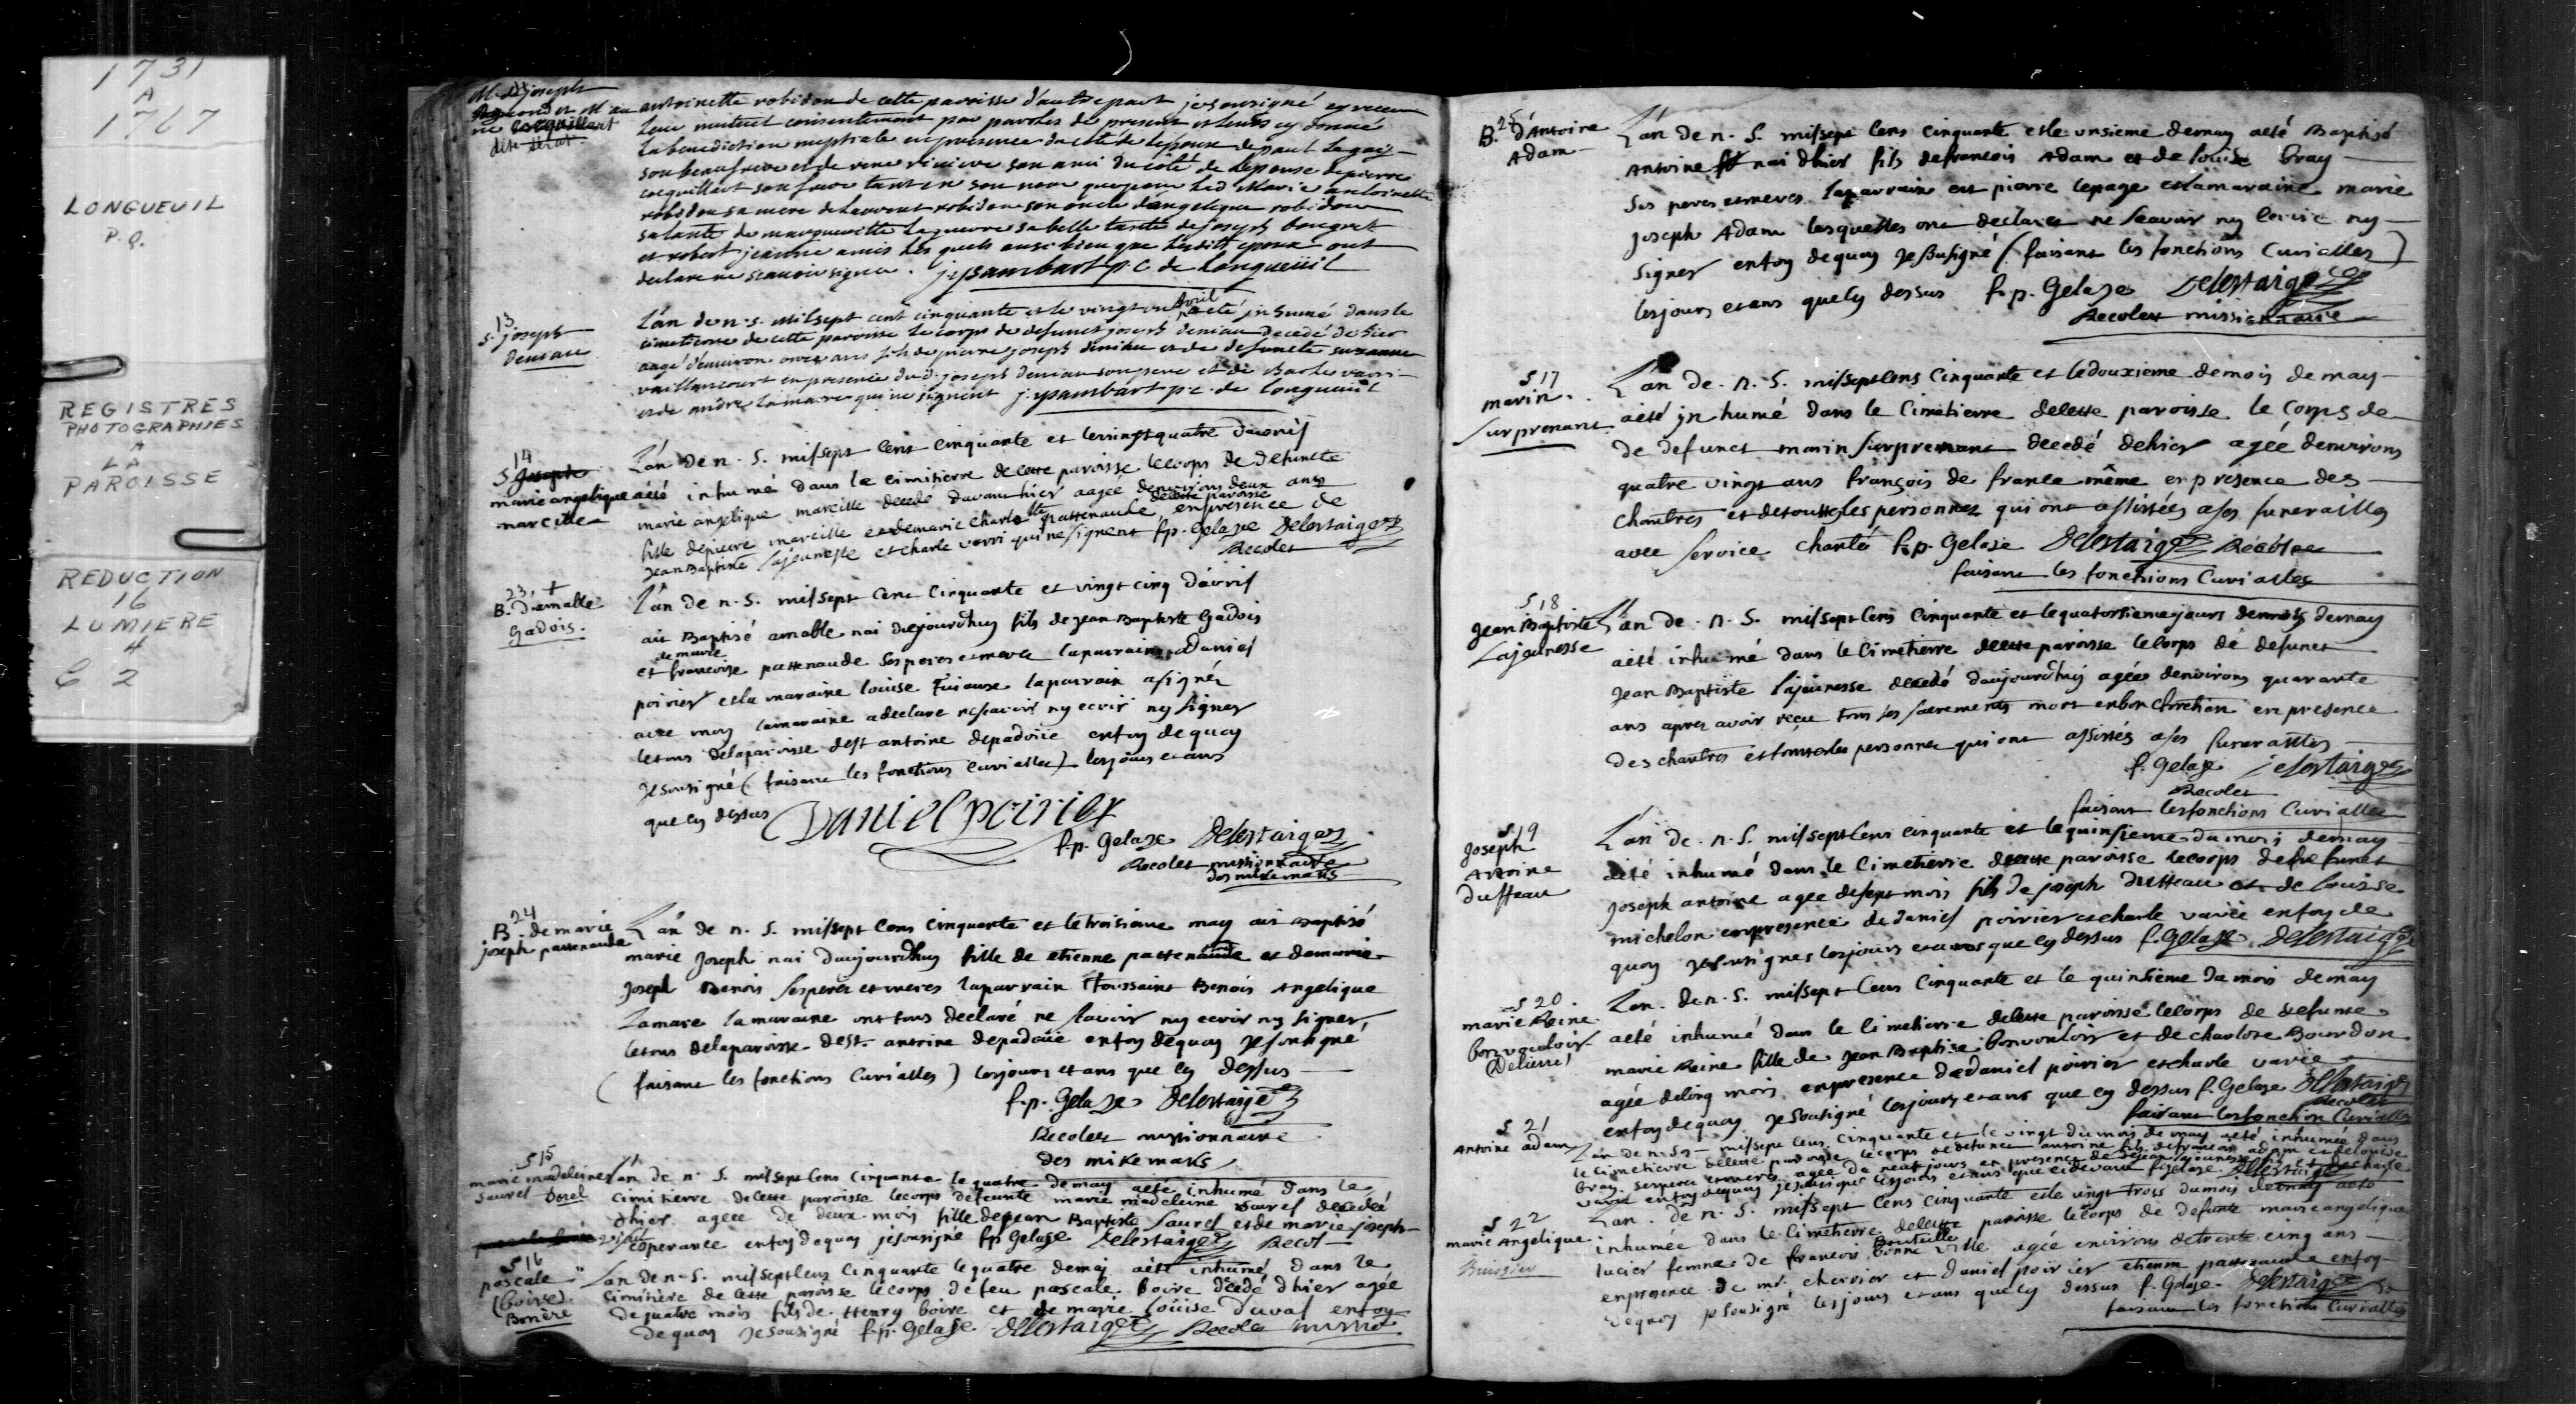 1731
A
1767
LONGUEUIL
P.Q.
REGISTRES
PHOTOGRAPHIES
A
LA
PAROISSE
REDUCTION
16
LUMIERE
4
C 2
M. d. joseph
antoinette robidou de cette paroisse d'autre part je sousigné ay receu
leur mutuel consentement par paroles de present et leurs ay donné
la benediction nuptiale en presence du coté de lepoux de paul
son beaufrere et de son ami du côté de lepouse de pierre
coquillart son frere tant en son nom que pour lad. Marie antoinette
robidou sa mere de laurent robidou son oncle dangelique robidou
sa tante de marguerite sa belle tante de joseph bougret
et robert amis les quels ausi bien que lesdits epoux ont
declare ne scavoir signer. j. ysambart p.c de Longueüil
13
S. joseph
deniau
L'an de n. s. mil sept cent cinquante et le vingt un avril a eté inhumé dans le
cimetiere de cette paroisse le corps de defunct joseph deniau decedé de hier
aagé denviron onze ans fils de pierre joseph deniau et de defuncte suzanne
vaillancourt en presence dud. joseph deniau son pere et de Charle varri
et de andre lamarre qui ne signent j. ysambart p.c. de longueuil
14
S Joseph
marie angelique
marcille
L'an de n. S. mil sept cens cinquante et le vingt quatre davril
a été inhumé dans le cimitierre de cette paroisse le corps de defuncte
marie angelique marcille decede davant hier aagée denvirons deux ans
fille de pierre marcille et de marie charlotte pattenaude de cette paroisse en presence de
Jean Baptiste Lajeunesse et charle varri qui ne signent f.p. Gelaze Delestaige
Recolet
23. +
B. D'amable
Gadois.
L'an de n. S. mil sept cent cinquante et vingt cinq d'avril
ai Baptisé amable nai dujourdhuy fils de Jean Baptiste Gadois
et de marie francoise pattenaude ses peres et meres la parrain Daniel
poirier et la maraine louise la parrain a signé
avec moy la maraine a declare ne scavoir ny ecrir ny signer
le tous de la paroisse de st antoine de padoüe en foy de quoy
Je sousigné (faisant les fonctions curialles) les jours et ans
que cy dessus Daniel poirier
f.p. Gelaze Delestaige
Recolet missionnaire
des mikemaks
24
B. de marie
joseph pattenaude
L'an de n. S. mil sept cens cinquante et le troisieme may ai Baptisé
marie Joseph nai daujourdhuy fille de etienne pattenaude et de marie
Joseph Benois ses peres et meres la parrain Toussaint Benois Angelique
Lamare la maraine ont tous declaré ne scavoir ny ecrir ny signer
le tous de la paroisse de St. antoine de padoüe en foy de quoy Je sousigné
(faisant les fonctions curialles) les jours et ans que cy dessus
f.p. Gelaze Delestaige
Recolet missionnaire
des mikemaks
S 15
marie madeleine
Saurel Sorel
L'an de n. S. mil sept cens cinquante le quatre de may a eté inhumé dans le
cimitierre de cette paroisse le corps defeunte marie madeleine saurel decedeé
d'hier ageee de deux mois fille de jean Baptiste Saurel et de marie Joseph
l'esperance en foy de quoy je sousigné f.p. Gelaze Delestaige Recol
S 16
pascale
(boire)
Borière
L'an de n. S. mil sept cens cinquante le quatre demay a eté inhumé dans le
cimitière de cette paroisse le corps de feu pascale boire décédé d'hier agée
de quatre mois fils de Henry boire et de marie Loüise Duval en foy
de quoy Je sousigné f.p. Gelaze Delestaige Recolet
25
B. d'Antoine
Adam
L'an de n. S. mil sept cens cinquante et le unsieme de may a eté Baptisé
Antoine nai d'hier fils de francois Adam et de louise bray
ses peres et meres la parrain est pierre lepage et la maraine marie
Joseph Adam lesquelles ont declaree ne scavoir ny ecrire ny
signer en foy de quoy Je Susigné (faisant les fonctions curialles)
les jours et ans que cy dessus f.p. Gelaze Delestaige
Recolet missionnaire
S 17
marin
surprenant
L'an de n. S. mil sept cens cinquante et le douxieme de mois de may
a été inhumé dans le cimetierre de cette paroisse le corps de
de defunct marin surprenant decedé de hier ageé denvirons
quatre vingt ans françois de france même en presence des
chantres et de touttes les personnes qui ont assistées a ses funerailles
avec service chanté f.p. Gelase Delestaige Recolet
faisant les fonctions curialles
S 18
Jean Baptiste
Lajeunesse
L'an de n. S. mil sept cens cinquante et le quatorsieme jours de mois de may
a été inhumé dans le cimetierre de cette paroisse le corps de defunct
Jean Baptiste lajeunesse decedé daujourdhuy agée denvirons quarante
ans apres avoir reçeu tous ses sacrements mort en bon chretien en presence
des chantres et touttes les personnes qui ont assistés a ses funerailles
f. Gelaze Delestaige
Recolet
faisant les fonctions curialles
S 19
Joseph
Antoine
Dutteau
L'an de n. S. mil sept cens cinquante et le quinsieme du mois de may
a été inhumé dans le cimetierre de cette paroisse le corps de defunct
Joseph antoine agee de sept mois fils de joseph Dutteau et de louisse
michelon en presence de daniel poirier et charle varié en foy de
quoy Je sousigné les jours et ans que cy dessus f. Gelaze Delestaige
S 20.
marie Reine
bonvouloir
Delierre
L'an de n. S. mil sept cens cinquante et le quinsieme du mois de may
a eté inhumé dans le cimetierre de cette paroisse le corps de defunte
marie Reine fille de Jean Baptise bonvouloir et de charlote Bourdon
agée de cinq mois en presence de daniel poirier et charle varie
en foy de quoy Je Sousigné les jours et ans que cy dessus f. Gelaze Delestaige
Recolet
faisant les fonction curialles
S 21
Antoine adam
L'an de n. S. mil sept cens cinquante et le vingt du mois de may a eté inhumée dans
le cimetierre de cette paroisse le corps de defunct antoine fils de francois adam et de louise
bray ses peres et meres agee de neuf jours en presence de jean lajeunesse et de charle
varie en foy de quoy je sousigné les jours et ans que ci devant f. Gelaze Delestaige
S 22
marie Angelique
L'an de n. S. mil sept cens cinquante et le vingt trois du mois de may a eté
inhumée dans le cimetierre de cette paroisse le corps de defunte marie angelique
lucier femme de francois bonne ville agée environs de trente cinq ans
en presence de mr. chervier et daniel poirier etienne pattenaude en foy
de quoy je sousigné les jours et ans que cy dessus f. Gelaze Delestaige
faisant les fonctions curialles